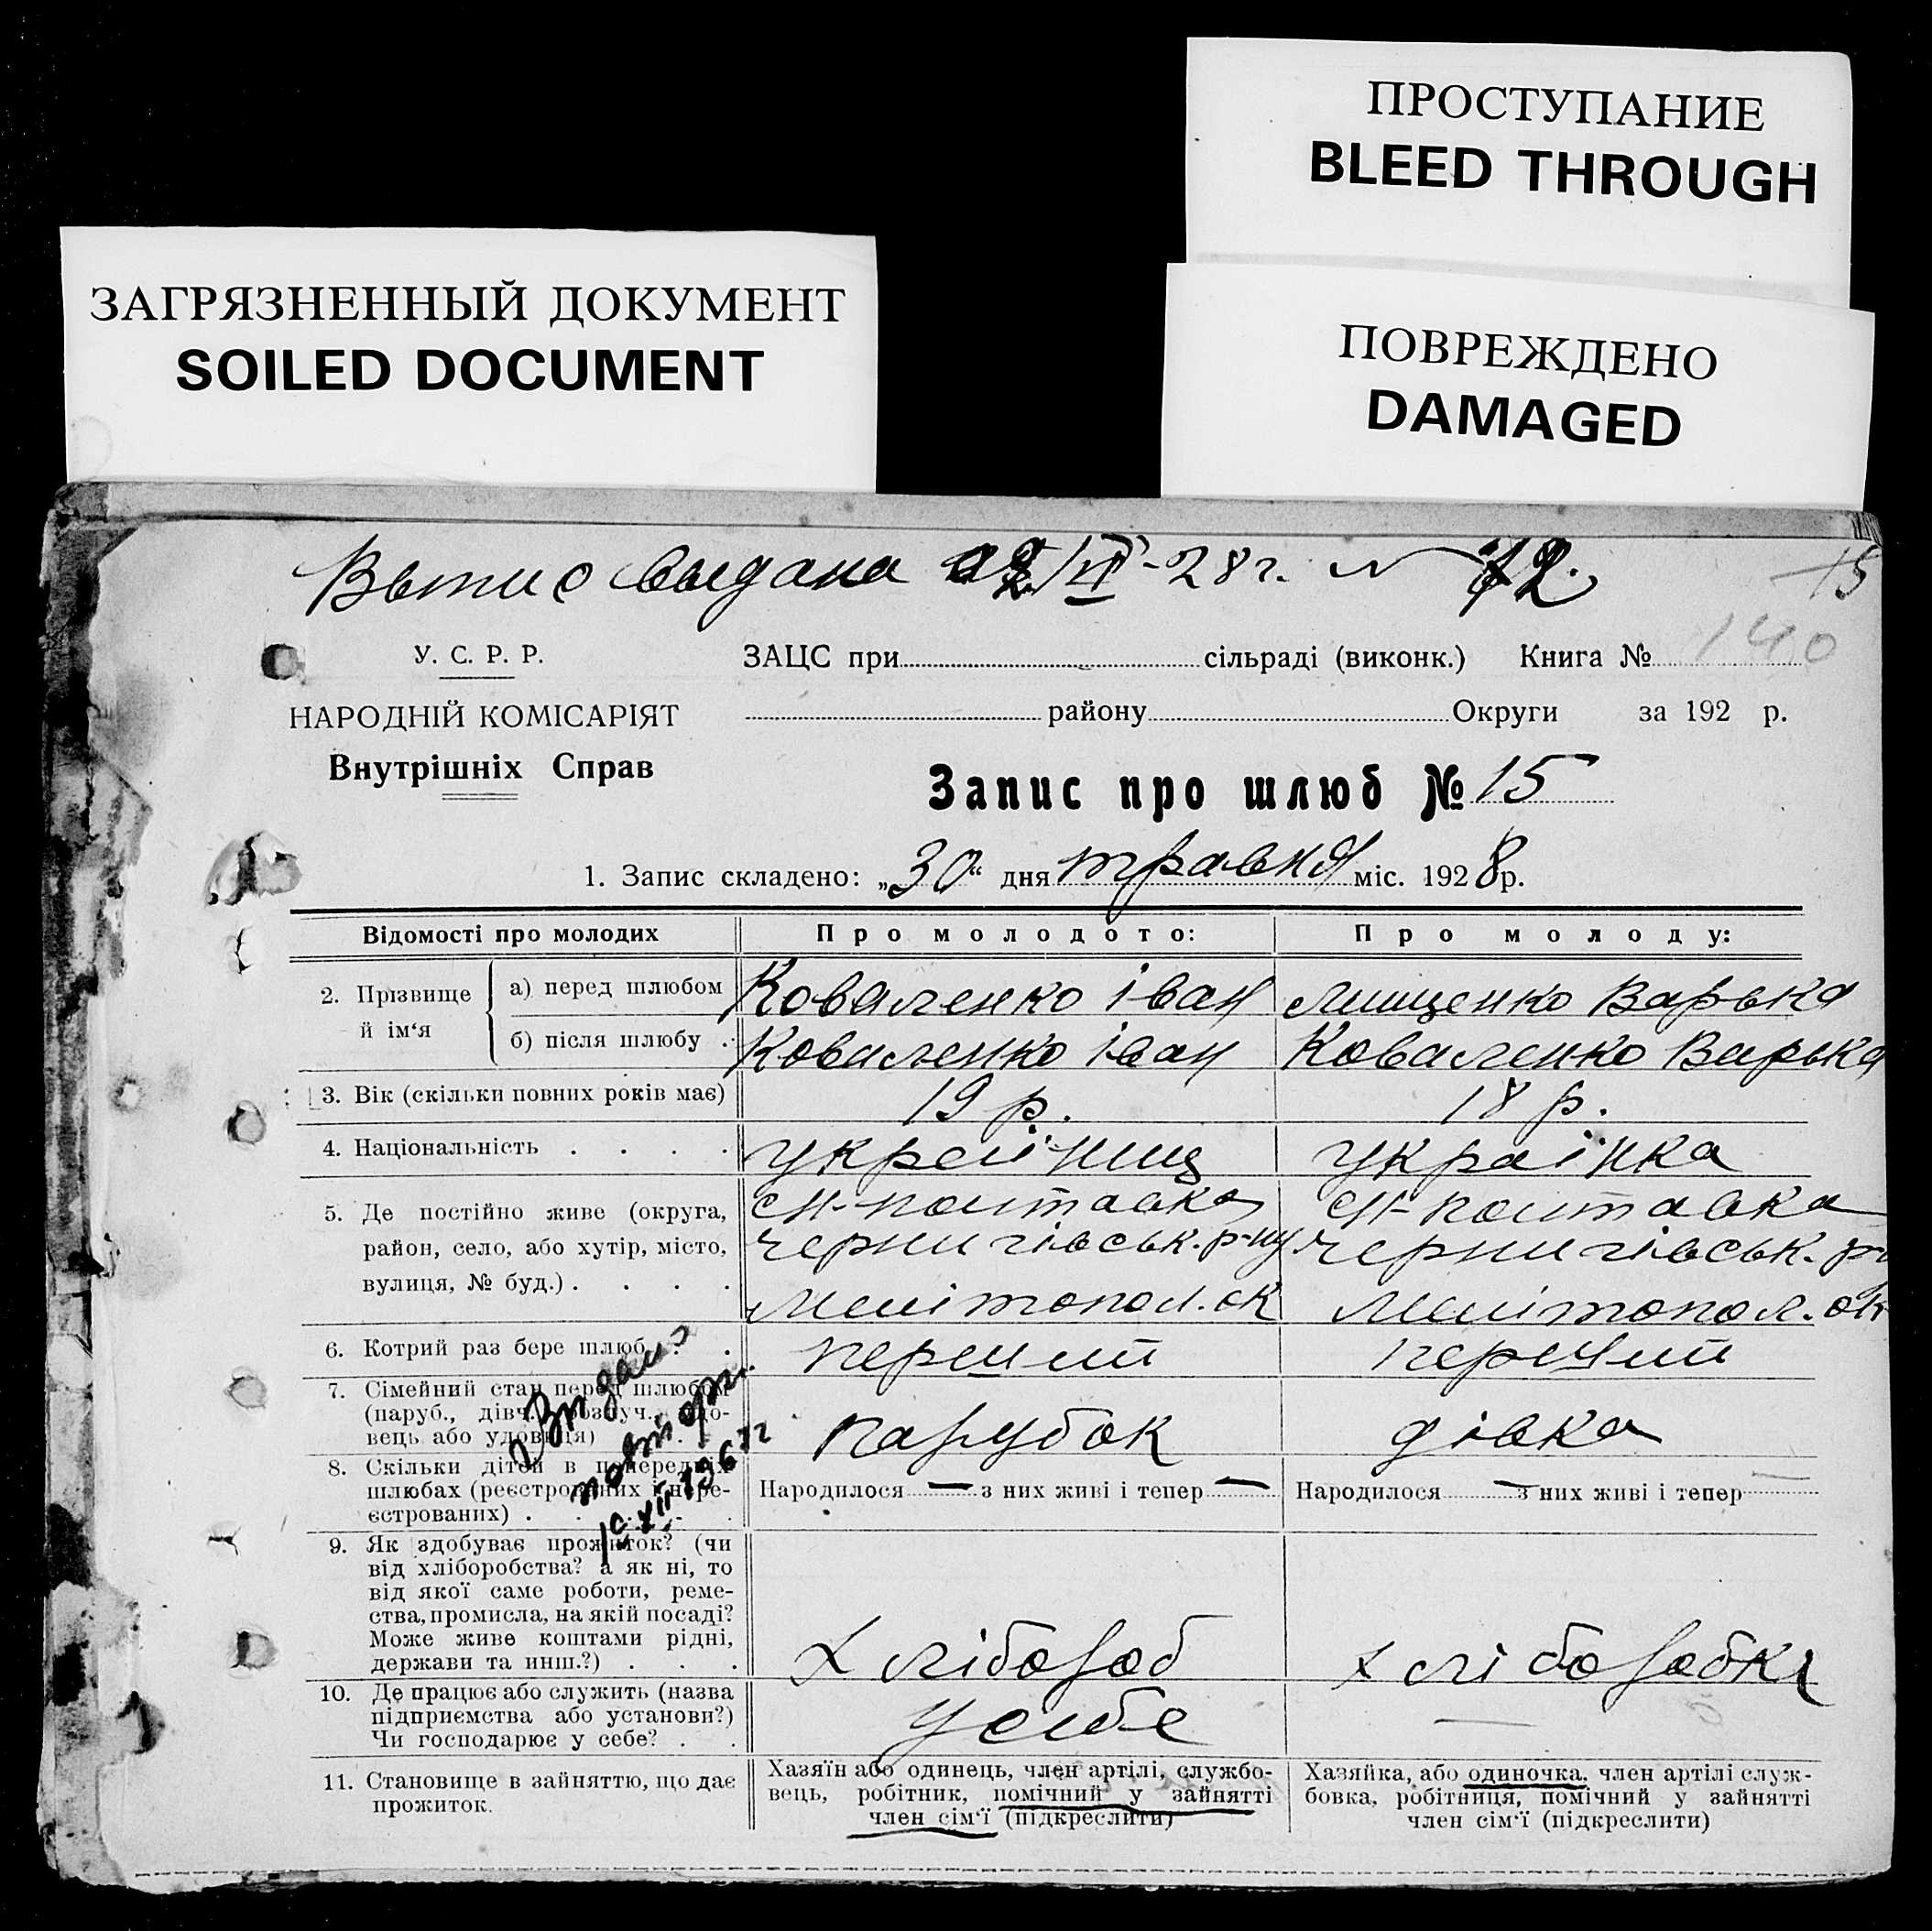 ПРОСТУПАНИЕ
BLEED THROUGH
ЗАГРЯЗНЕННЫЙ ДОКУМЕНТ
SOILED DOCUMENT
ПОВРЕЖДЕНО
DAMAGED
Вытис выдана /VI-28 г. N 12.
15
140
У. С. Р. Р.
ЗАЦС при сільраді (виконк.) Книга №
НАРОДНІЙ КОМІСАРІЯТ
району Округи за 192 р.
Внутрішніх Справ
Запис про шлюб № 15
1. Запис складено: „30“ дня травня міс. 1928 р.
Відомості про молодих
Про молодого:
Про молоду:
2. Прізвище й ім‘я
а) перед шлюбом
Коваленко Іван
Лищенко Варька
б) після шлюбу .
Коваленко Іван
Коваленко Варька
3. Вік (скільки повних років має)
19 р.
18 р.
4. Національність . . . .
україниц
українка
5. Де постійно живе (округа,
район, село, або хутір, місто,
вулиця, № буд.) . . . .
с Н-Полтавка
чернигівськ. р-ну
Мелітопол. ок
с Н-Полтавка
чернигівськ. р-
Мелітопол. ок
6. Котрий раз бере шлюб . .
перший
перший
7. Сімейний стан перед шлюбом
(паруб., дівч., розлуч., удо-
вець або удовиця) . . .
парубок
дівка
Видано
повторн.
8. Скільки дітей в попередніх
шлюбах (реєстрованих і нере-
єстрованих) . . . . .
Народилося — з них живі і тепер —
Народилося — з них живі і тепер
9. Як здобуває прожиток? (чи
від хліборобства? а як ні, то
від якої саме роботи, реме-
ства, промисла, на якій посаді?
Може живе коштами рідні,
держави та инш.?) . . .
Хлібороб
хліборобка
10. Де працює або служить (назва
підприємства або установи?)
Чи господарює у себе? . .
У себе
—
11. Становище в зайняттю, що дає
прожиток.
Хазяїн або одинець, член артілі, службо-
вець, робітник, помічний у зайнятті
член сім‘ї (підкреслити)
Хазяйка, або одиночка, член артілі служ-
бовка, робітниця, помічний у зайнятті
член сім‘ї (підкреслити)